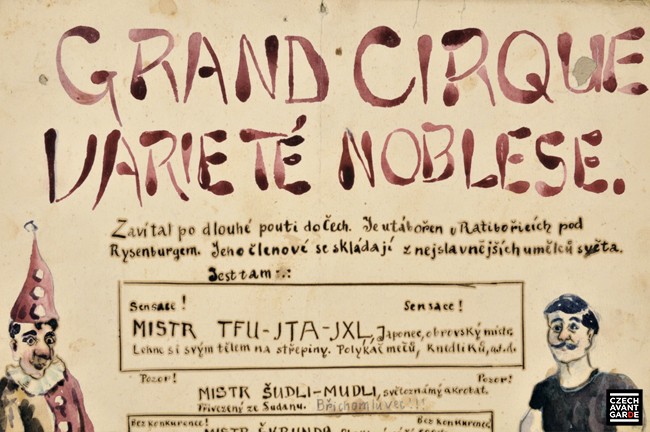 GRAND CIRQUE
VARIETÉ NOBLESE.
Zavítal po dlouhé pouti do Čech. Je utábořen v Ratibořicích pod
Rysenburgem. Jeho členové se skládají z nejslavnějších umělců světa.
Jest tam :.:
Sensace! Sensace!
MISTR TFU-JTA-JXL, Japonec, obrovský mistr.
Lehne si svým tělem na střepiny. Polykáč mečů, knedlíků, a.t.d.
Pozor! Pozor!
MISTR ŠUDLI-MUDLI, světoznámý akrobat.
Přivezený ze Sudanu. Břichomluvec!!!
Bez konkurence! Bez konkurence!
MISTR
CZECH
AVANT
GARDE